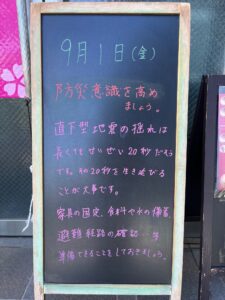 9月1日(金)
防災意識を高め
ましょう。
直下型地震の揺れは
長くてもせいぜい20秒だそう
です。初20秒を生き延びる
ことが大事です。
家具の固定、食料や水の備蓄、
避難経路の確認 等
準備できることをしておきましょう。